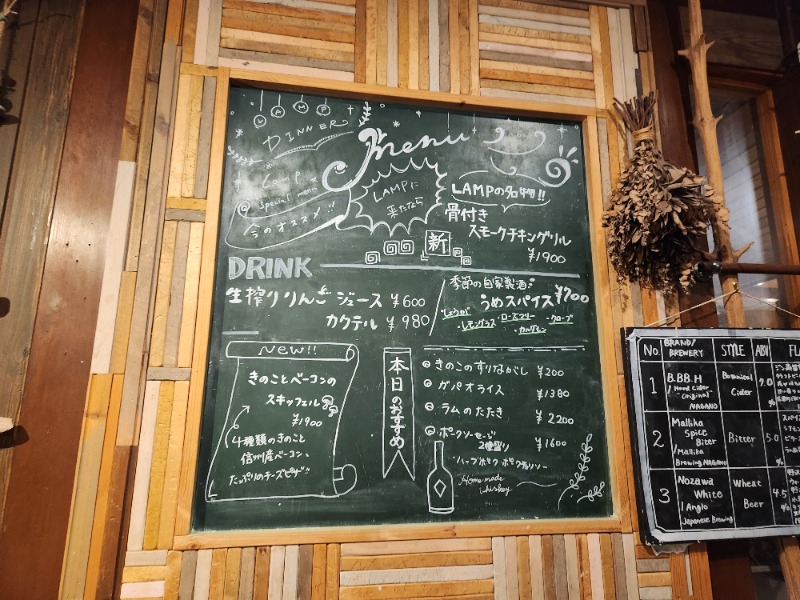 VAMP
DINNER
Menu
Lamp's
special menu
今のオススメ!!
LAMPに
来たなら
LAMPの名物!!
骨付き
スモークチキングリル
¥1900
新
DRINK
生搾りりんごジュース ¥600
カクテル ¥980
季節の自家製酒
うめスパイス ¥700
・しょうが
・レモングラス
・ローズマリー
・カルダモン
・クローブ
NEW!!
きのことベーコンの
スキッフェル
¥1900
4種類のきのこ
信州産ベーコン、
たっぷりのチーズピザ
本日のおすすめ
きのこのすりながし ¥200
ガパオライス ¥1380
ラムのたたき ¥2200
ポークソーセージ
2種盛り ¥1600
Home made
whiskey
No. BRAND/BREWERY STYLE ABV
1 B.B.H / Hard Cider "Original" NAGANO Botanical Cider 7.0 %
2 Mallika Spice Bitter / Mallika Brewing NAGANO Bitter 5.0 %
3 Nozawa White / Anglo Japanese Brewing Wheat Beer 4.5 %